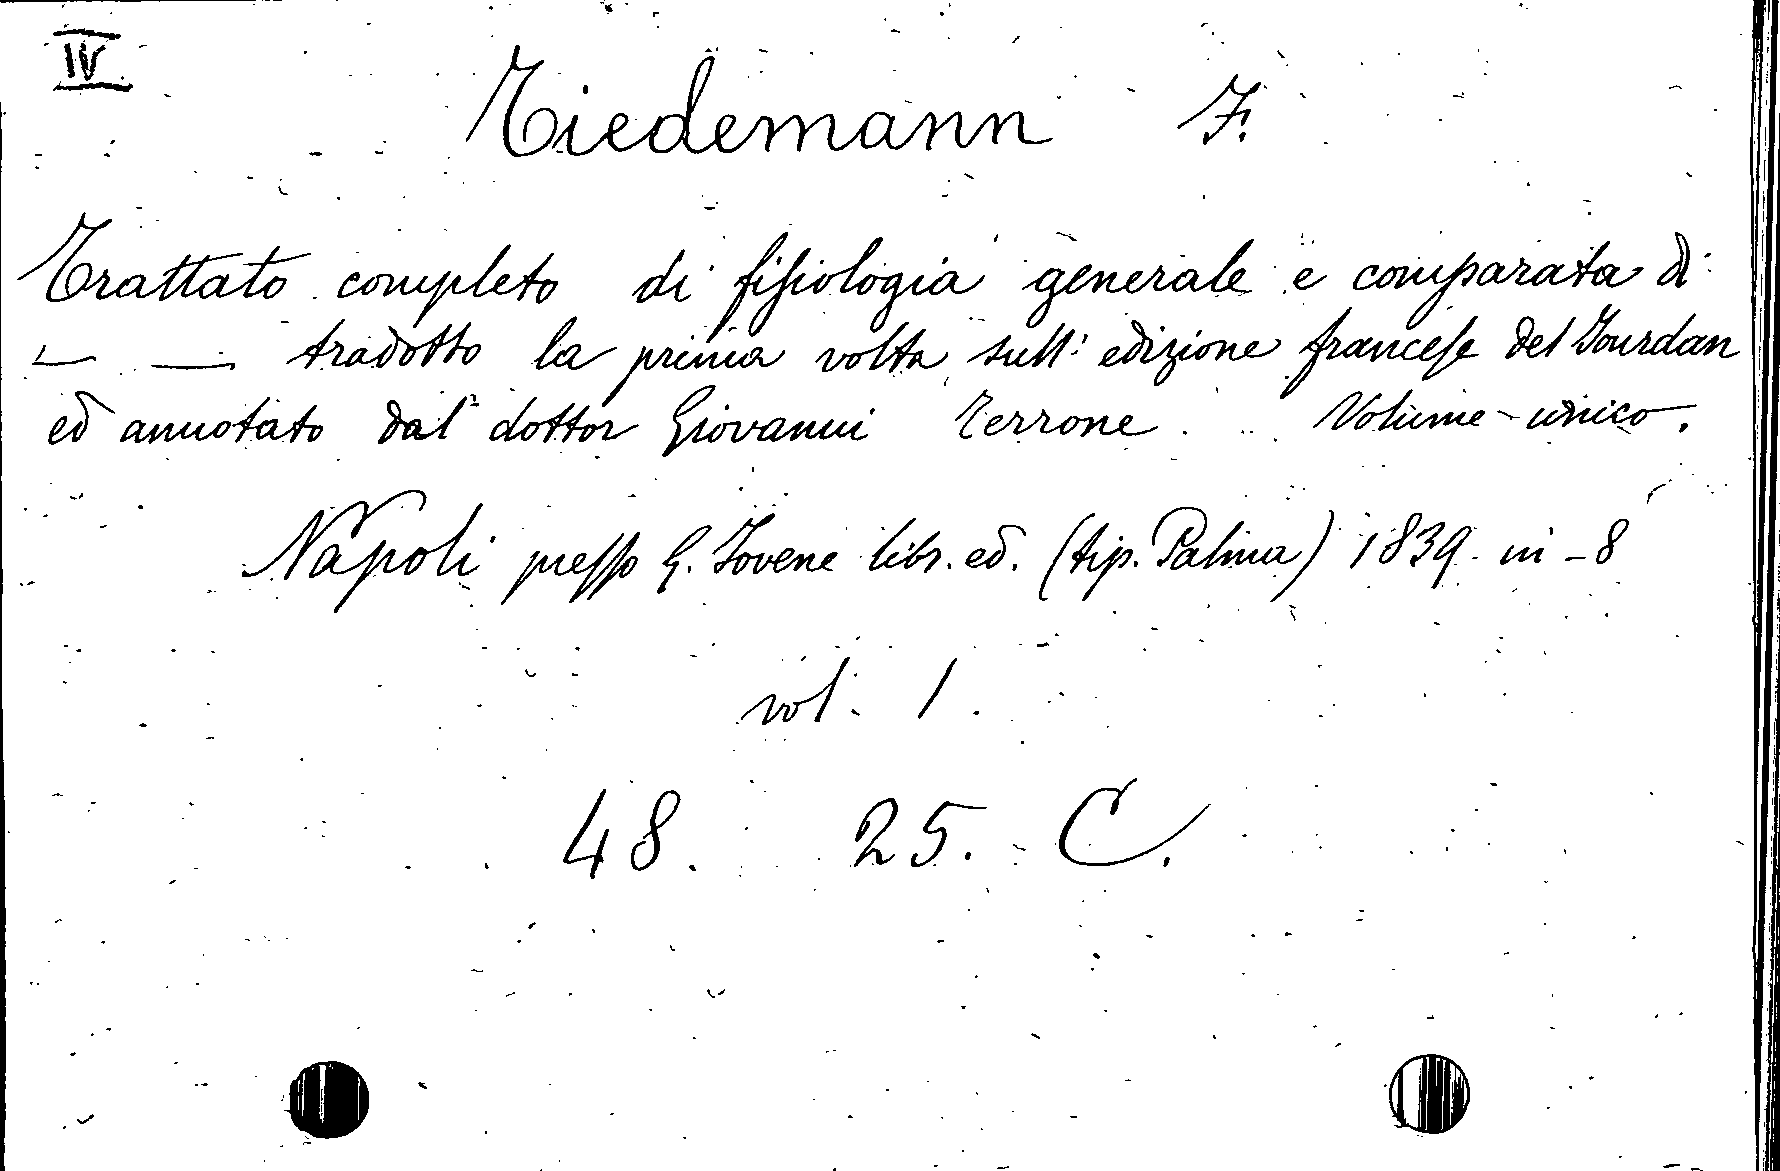 IV
Tiedemann F.
Trattato completo di fisiologia generale e comparata di
— — tradotto la prima volta sull' edizione francese del Jourdan
ed annotato dal dottor Giovanni Terrone. Volume unico.
Napoli presso G. Jovene libr. ed. (tip. Palma) 1839. in-8
vol. 1.
48. 25. C.